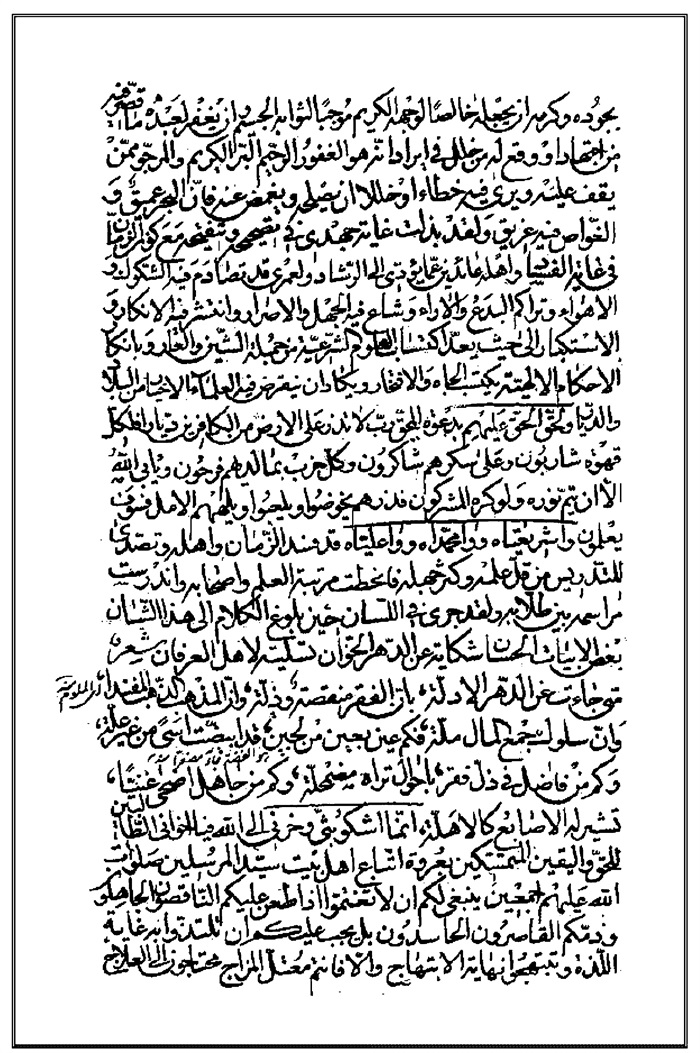 بجوده وكرمه ان يجعله خالصا لوجهه الكريم موجبا لثوابه الجسيم وان يغفر لعبده ما قصر فيه
من اجتهاد او وقع له من خلل في ايراد انه هو الغفور الرحيم البر الكريم والمرجو ممن
يقف عليه ويرى فيه خطاء او خللا ان يصلحه ويغمض عنه فان البحر عميق و
الغواص فيه غريق ولقد بذلت غاية جهدي في تصحيحه وتنقيحه مع كون الزمان
في غاية الفساد واهله عاندين عما يؤدي الى الرشاد ولعمري قد تصادم فيه الشكوك و
الاهواء وتراكم البدع والاراء وشاع فيه الجهل والاصرار وانتشر فيه الانكار و
الاستكبار الى حيث يعد اكتساب العلوم الشرعية من جملة الشين والعار وبانكار
الاحكام الالهية يكتسب الجاه والافتخار ويكاد ان ينقرض فيه العلماء الاخيار من البلاد
والديار ولحق الحق عليهم بدعوة للحق رب لا تذر على الارض من الكافرين ديارا فلكل
قهوة شاربون وعلى سكرهم شاكرون وكل حزب بما لديهم فرحون ويابى الله
الا ان يتم نوره ولو كره المشركون فذرهم يخوضوا ويلعبوا ويلههم الامل فسوف
يعلمون واشريعتاه ووامحمداه وواعلياه قد فسد الزمان واهله وتصدى
للتدريس من قل علمه وكثر جهله فانحطت مرتبة العلم واصحابه واندرست
مراسمه بين طلابه ولقد جرى في اللسان حين بلوغ الكلام الى هذا الشان
بعض الابيات الحسان شكاية عن الدهر الخوان تسلية لاهل العرفان شعر
متى جاءت عن الدهر الادلة، بان الفقر منقصة وذلة، وان المذهب
وان سلوك جمع المال ملة، فكم عين بعين من لجين، قد ابيضت اسى من غير علة،
وكم من فاضل في ذل فقر، باحوال تراه مضمحلة، وكم من جاهل اضحى غنيا،
تشير له الاصابع كالاهلة، انما اشكو بثي وحزني الى الله فيا اخواني الطالبين
للحق واليقين المتمسكين بعروة اتباع اهل بيت سيد المرسلين صلوات
الله عليهم اجمعين ينبغي لكم ان لا تغتموا اذا طعن عليكم الناقصون الجاهلون
وذمكم القاصرون الحاسدون بل يجب عليكم ان تلتذوا به غاية
اللذة وتبتهجوا نهاية الابتهاج والا فانتم معتل المزاج محتاجون الى العلاج